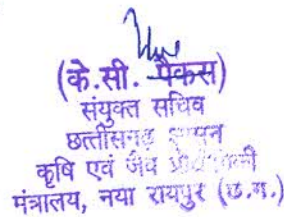 (के.सी. पैकरा)
संयुक्त सचिव
छत्तीसगढ़ शासन
कृषि एवं जैव
मंत्रालय, नया रायपुर (छ.ग.)